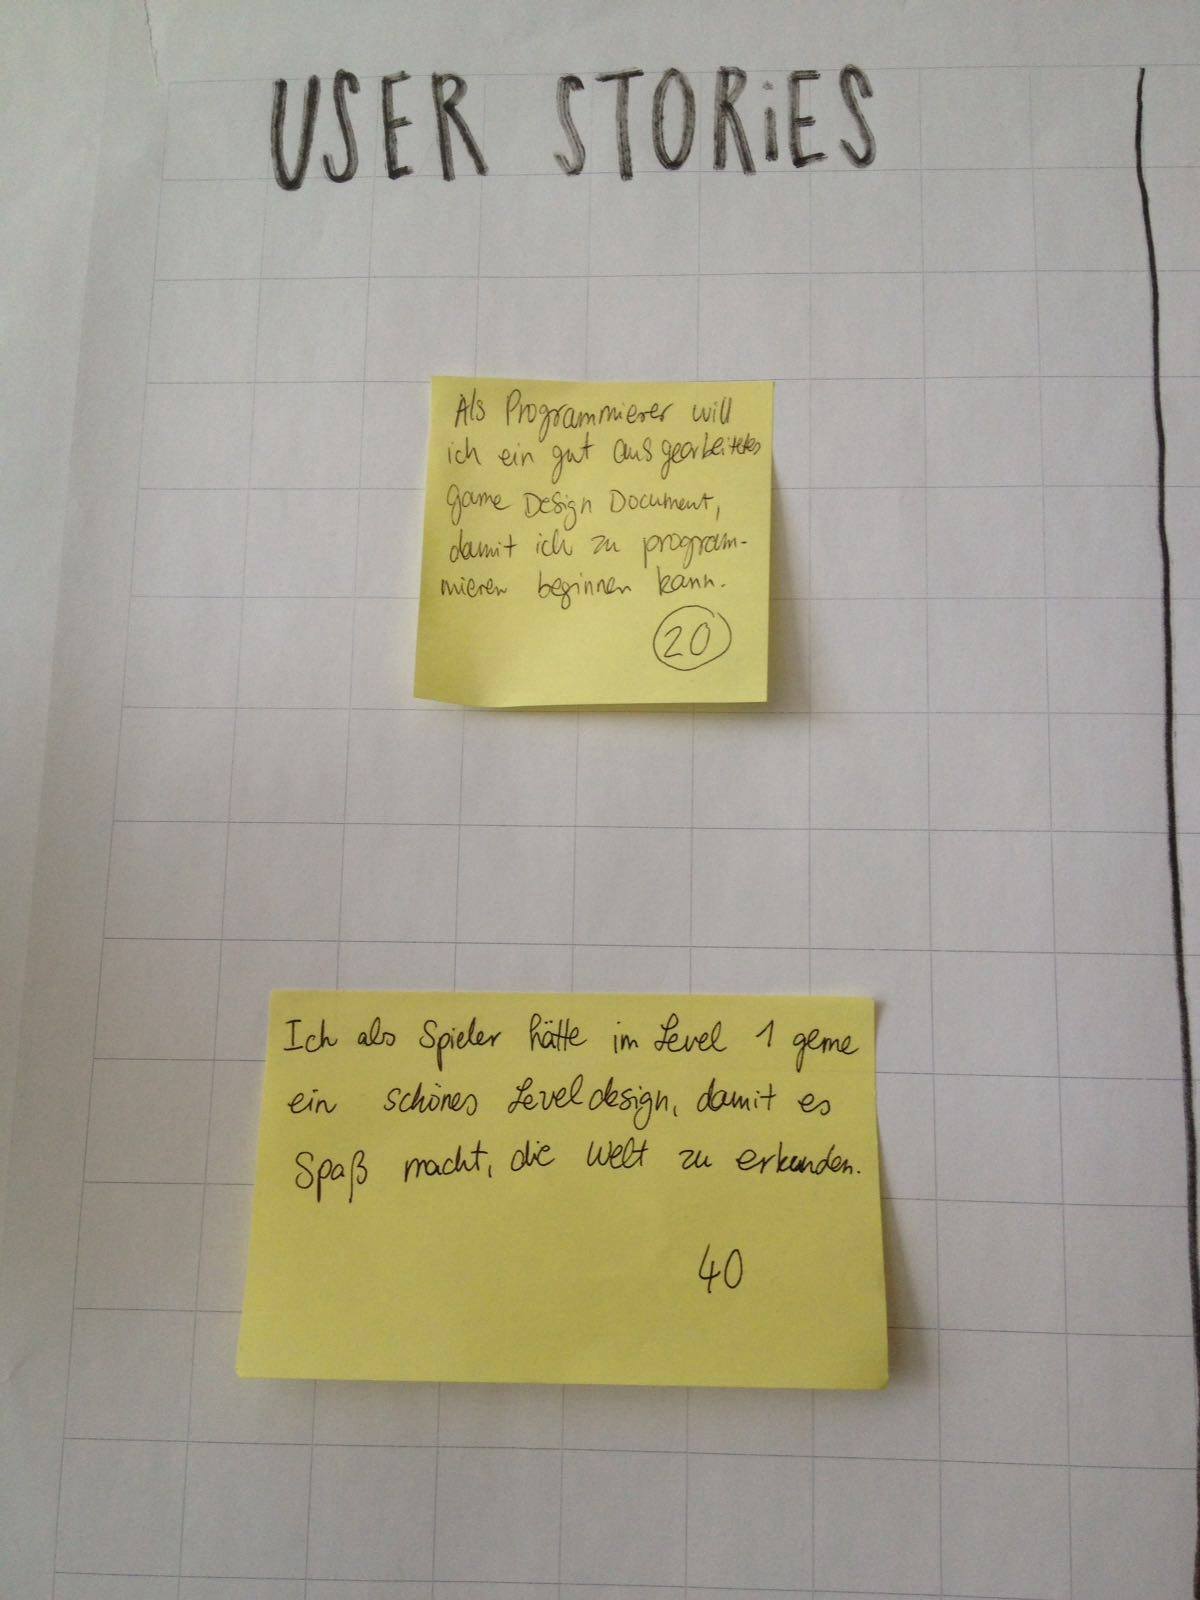 USER STORiES
Als Programmierer will
ich ein gut ausgearbeitetes
Game Design Document,
damit ich zu program-
mieren beginnen kann.
20
Ich als Spieler hätte im Level 1 gerne
ein schönes Leveldesign, damit es
Spaß macht, die Welt zu erkunden.
40